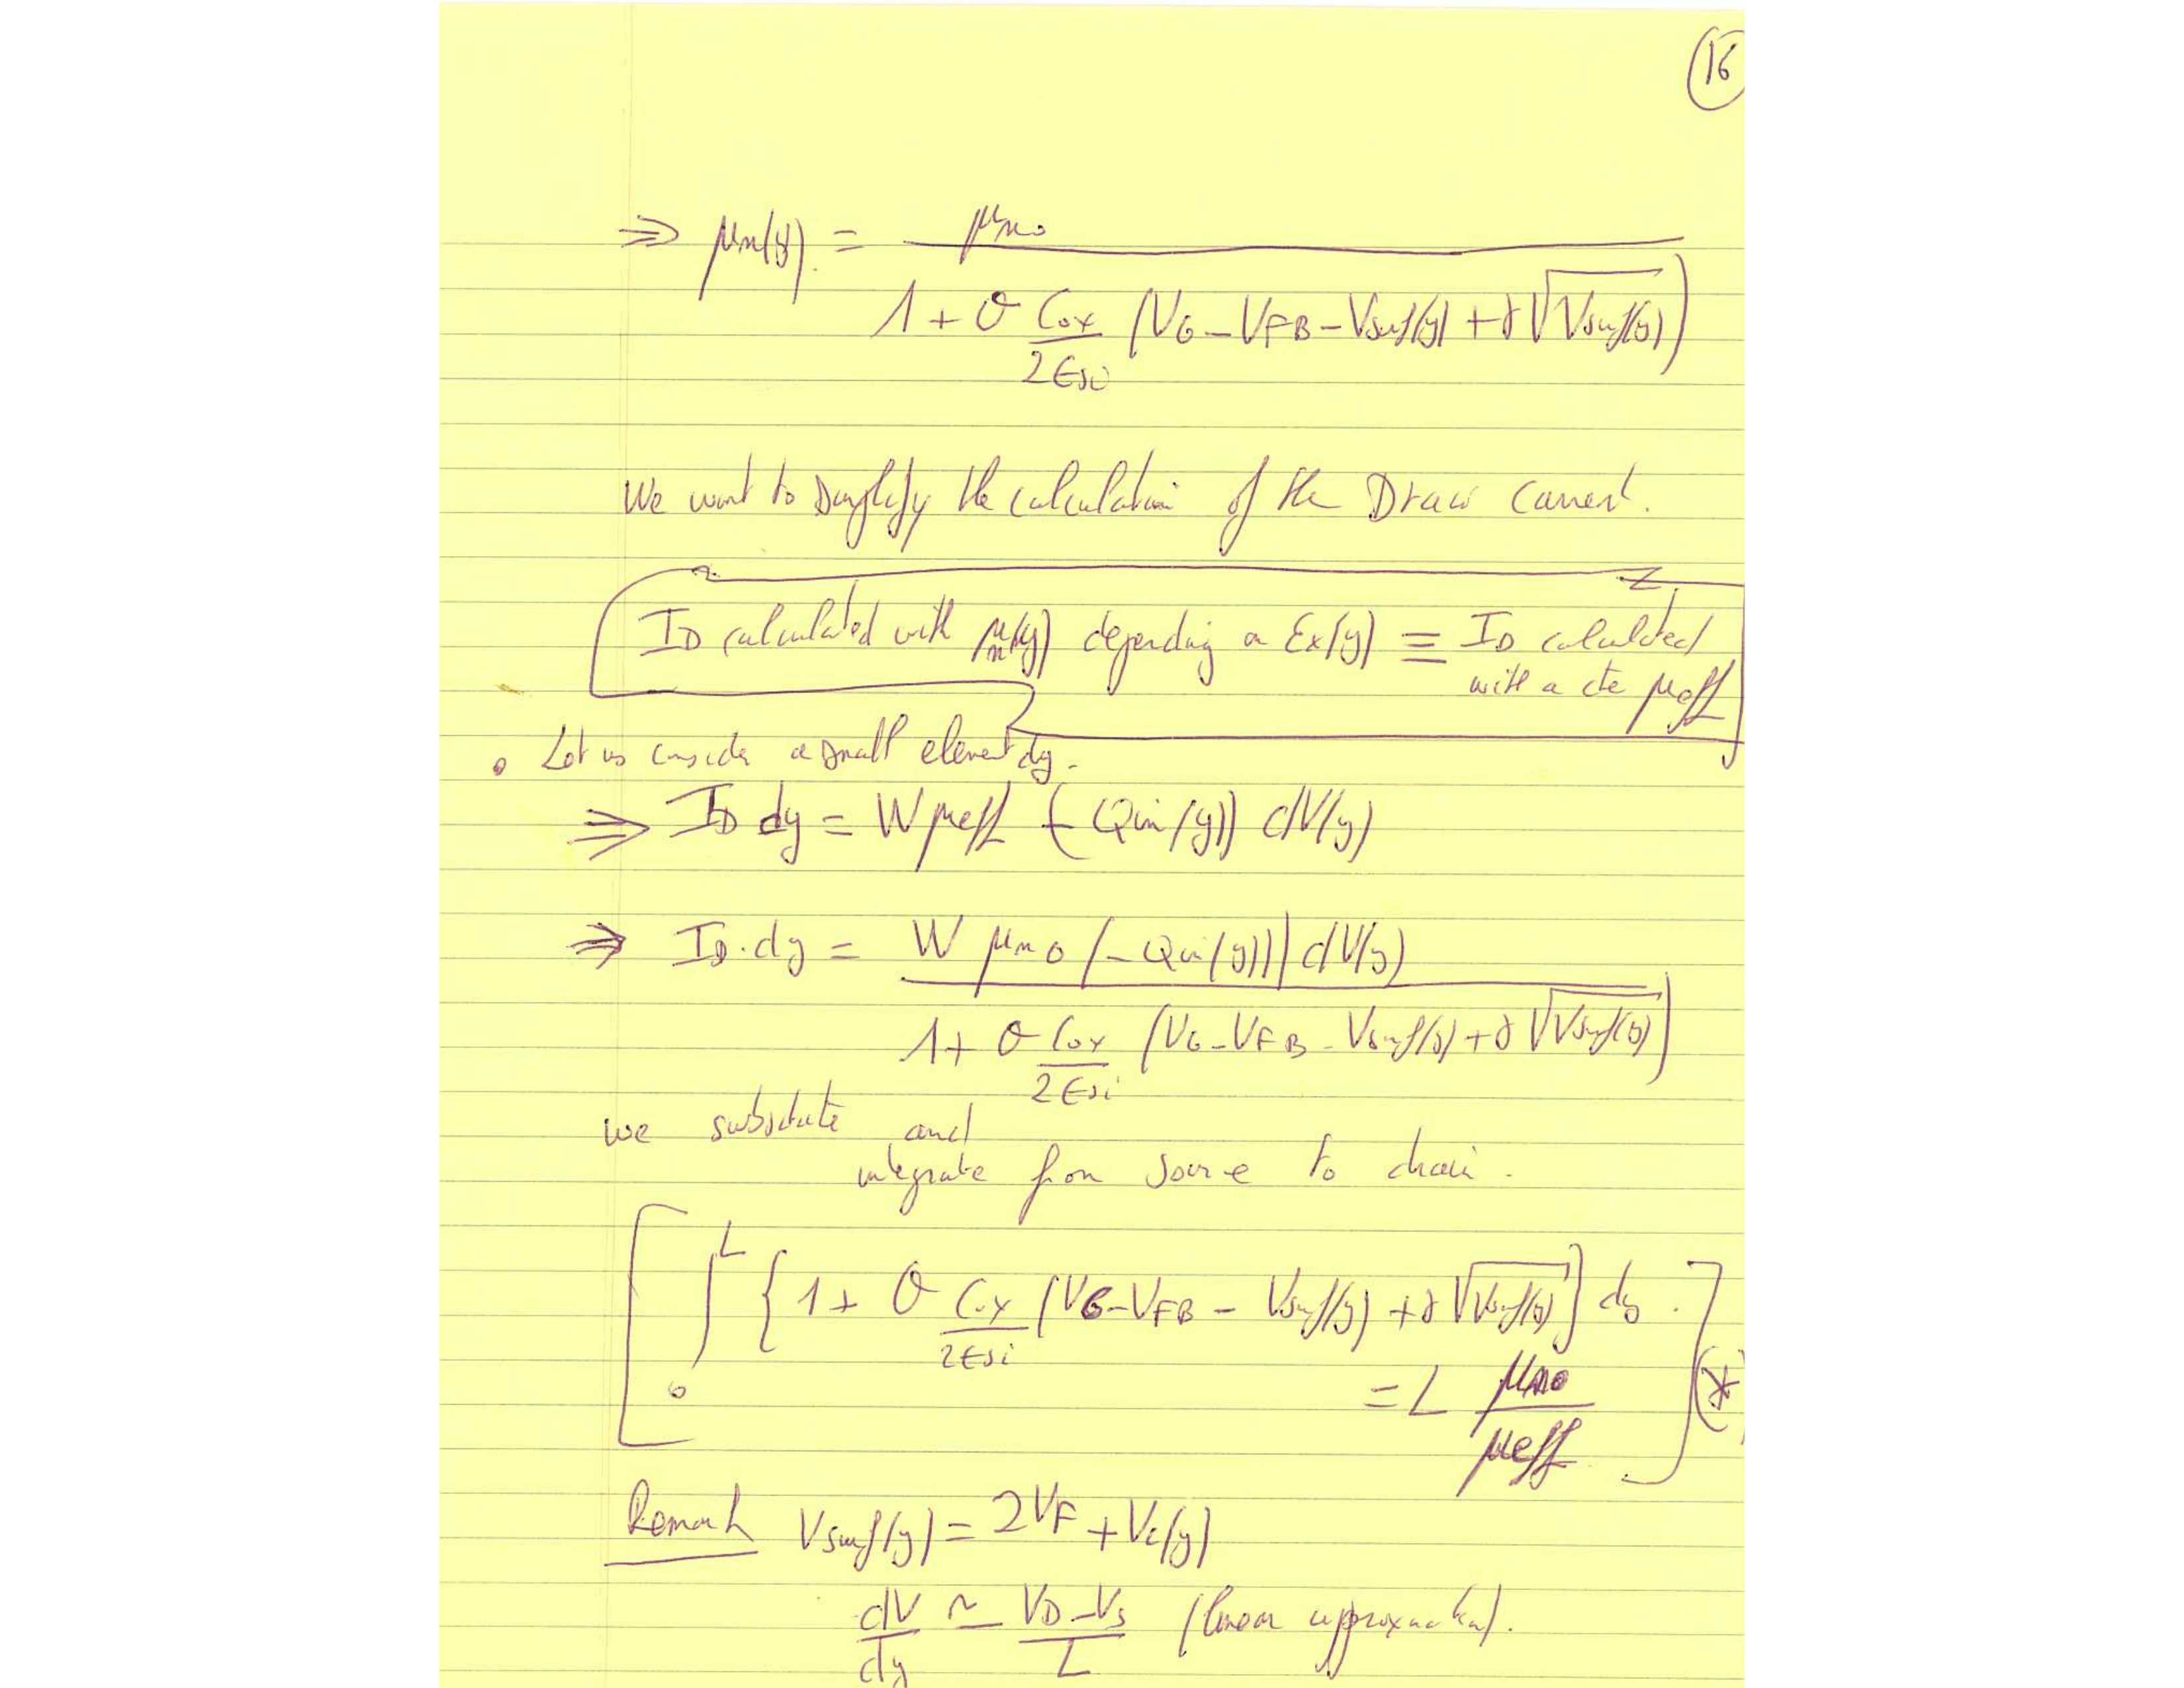 16
⇒ μn(y) = μno / (1 + θ Cox/2εsi (VG - VFB - Vsurf(y) + γ√Vsurf(y)))
We want to simplify the calculation of the Drain current.
ID calculated with μn(y) depending on Ex(y) ≡ ID calculated
with a cte μeff
• Let us consider a small element dy.
⇒ ID dy = W μeff (-Qin(y)) dV(y)
⇒ ID.dy = W μno (-Qin(y)) dV(y) / (1 + θ Cox/2εsi (VG - VFB - Vsurf(y) + γ√Vsurf(y)))
we substitute and
integrate from source to drain.
[ ∫0^L {1 + θ Cox/2εsi (VG - VFB - Vsurf(y) + γ√Vsurf(y)} dy.
= L μno/μeff ] (*)
Remark Vsurf(y) = 2VF + Vc(y)
dV/dy ≃ VD - VS / L (linear approximation).